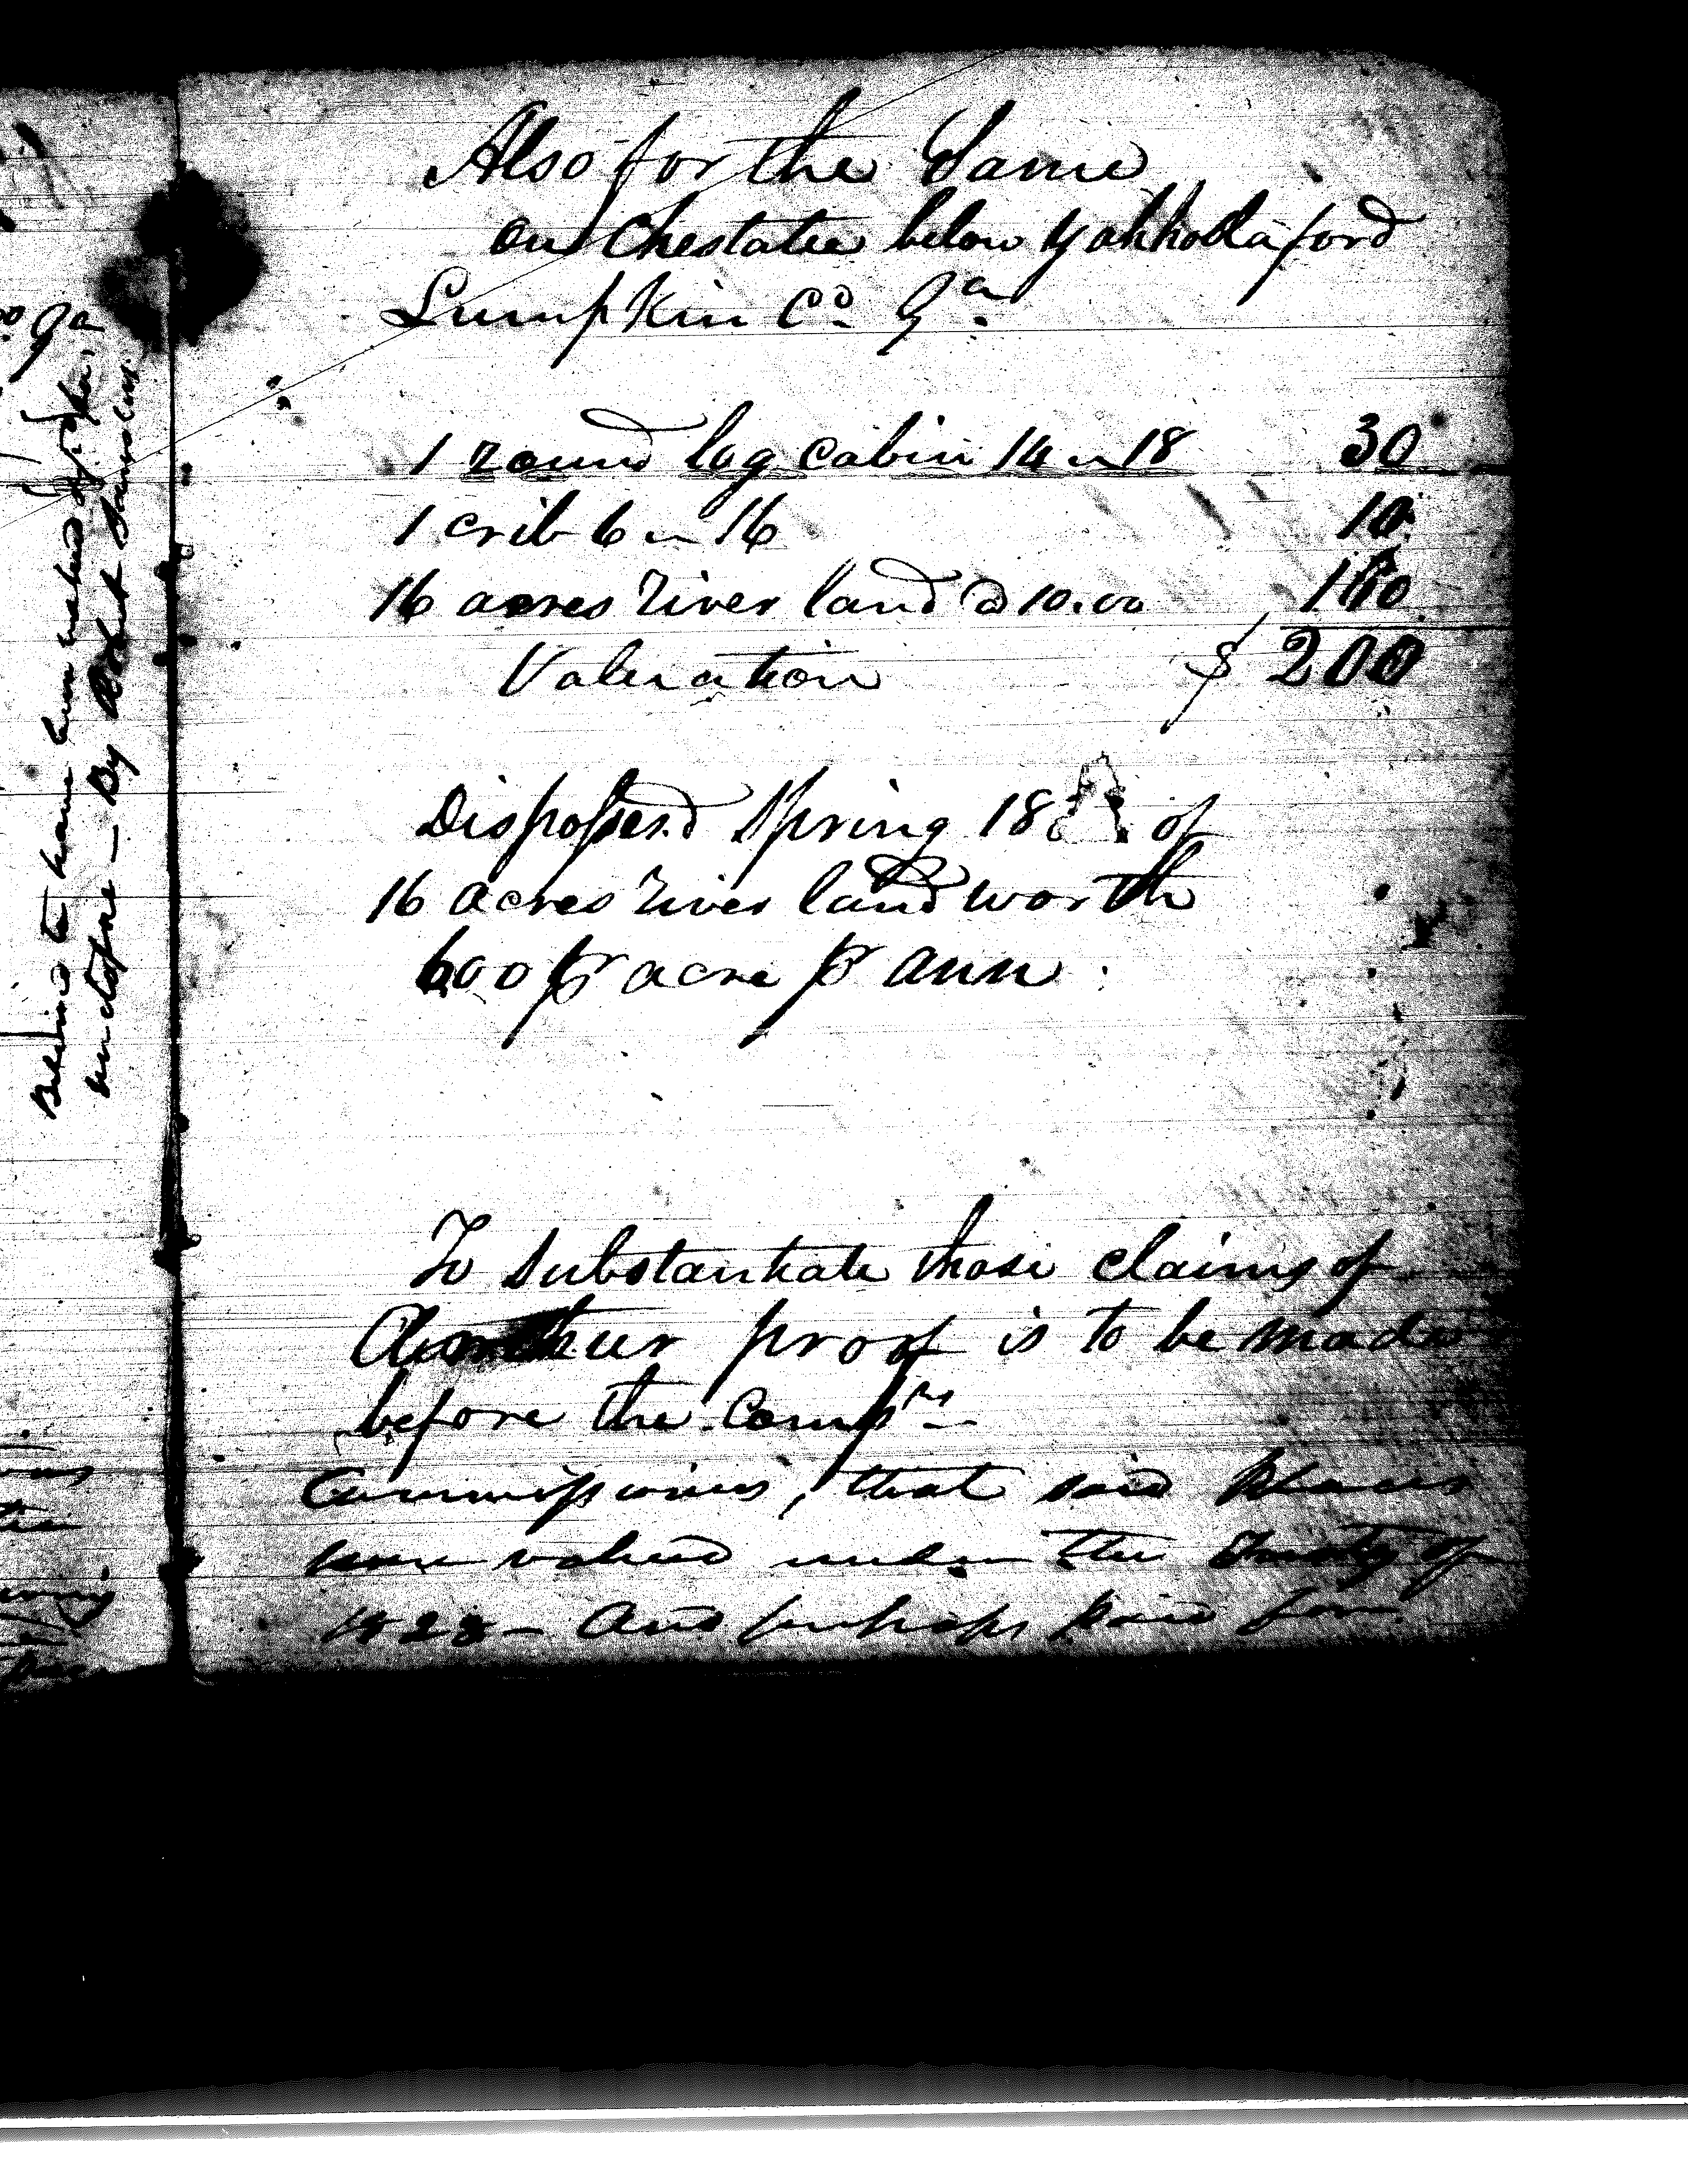 Also for the Same
on Chestatee below Yahhoola ford
Lumpkin Co. Ga.
1 round log cabin 14 x 18 30
1 crib 6 x 16 10
16 acres river land @ 10.00 160
Valuation $ 200
Dispossesd Spring 18 of
16 acres river land worth
600 pr acre pr ann
To Substantiate those claims of
proof is to be made
before the Comrs
Commissioners, that said places
were valued under the Treaty of
1828 - And perhaps paid for.
Believed to have been valued
heretofore - By Robert
Ga